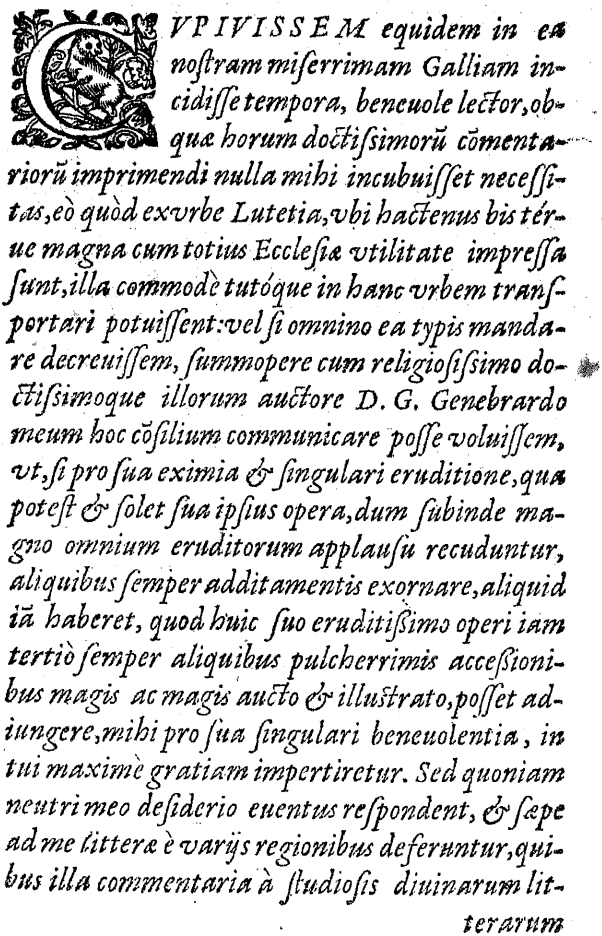 CVPIVISSEM equidem in ea
noſtram miſerrimam Galliam in-
cidiſſe tempora, beneuole lector, ob-
quæ horum doctiſsimorū cōmenta-
riorū imprimendi nulla mihi incubuiſſet neceſſi-
tas, eò quòd ex vrbe Lutetia, vbi hactenus bis tér-
ue magna cum totius Eccleſiæ vtilitate impreſſa
ſunt, illa commodè tutóque in hanc vrbem tranſ-
portari potuiſſent: vel ſi omnino ea typis manda-
re decreuiſſem, ſummopere cum religioſiſsimo do-
ctiſsimoque illorum auctore D. G. Genebrardo
meum hoc cōſilium communicare poſſe voluiſſem,
vt, ſi pro ſua eximia & ſingulari eruditione, qua
poteſt & ſolet ſua ipſius opera, dum ſubinde ma-
gno omnium eruditorum applauſu recuduntur,
aliquibus ſemper additamentis exornare, aliquid
iā haberet, quod huic ſuo eruditißimo operi iam
tertiò ſemper aliquibus pulcherrimis acceßioni-
bus magis ac magis aucto & illuſtrato, poſſet ad-
iungere, mihi pro ſua ſingulari beneuolentia, in
tui maximè gratiam impertiretur. Sed quoniam
neutri meo deſiderio euentus reſpondent, & ſæpe
ad me litteræ è varijs regionibus deferuntur, qui-
bus illa commentaria à ſtudioſis diuinarum lit-
terarum